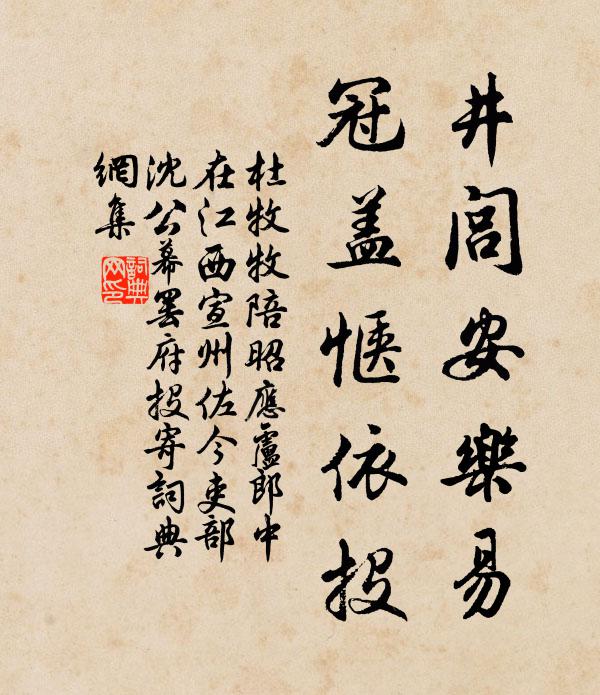 井閭安樂易
冠蓋愜依投
杜牧牧陪昭應盧郎中
在江西宣州佐今吏部
沈公幕罷府投寄詞典
網集
詞典網印